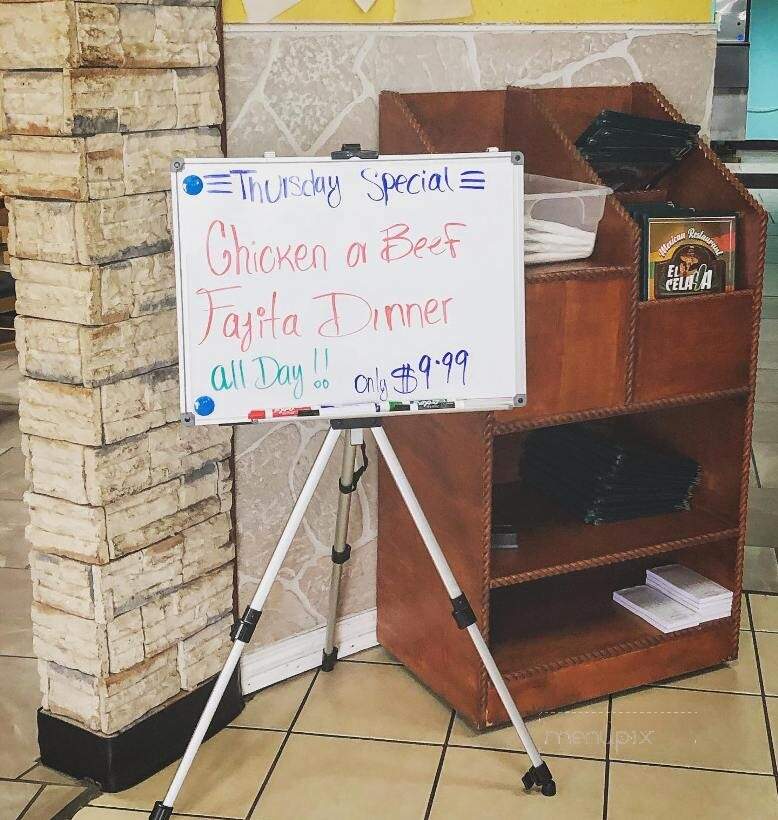 Thursday Special
Chicken or Beef
Fajita Dinner
all Day !! only $9.99
Mexican Restaurant
EL
CELAYA
menupix